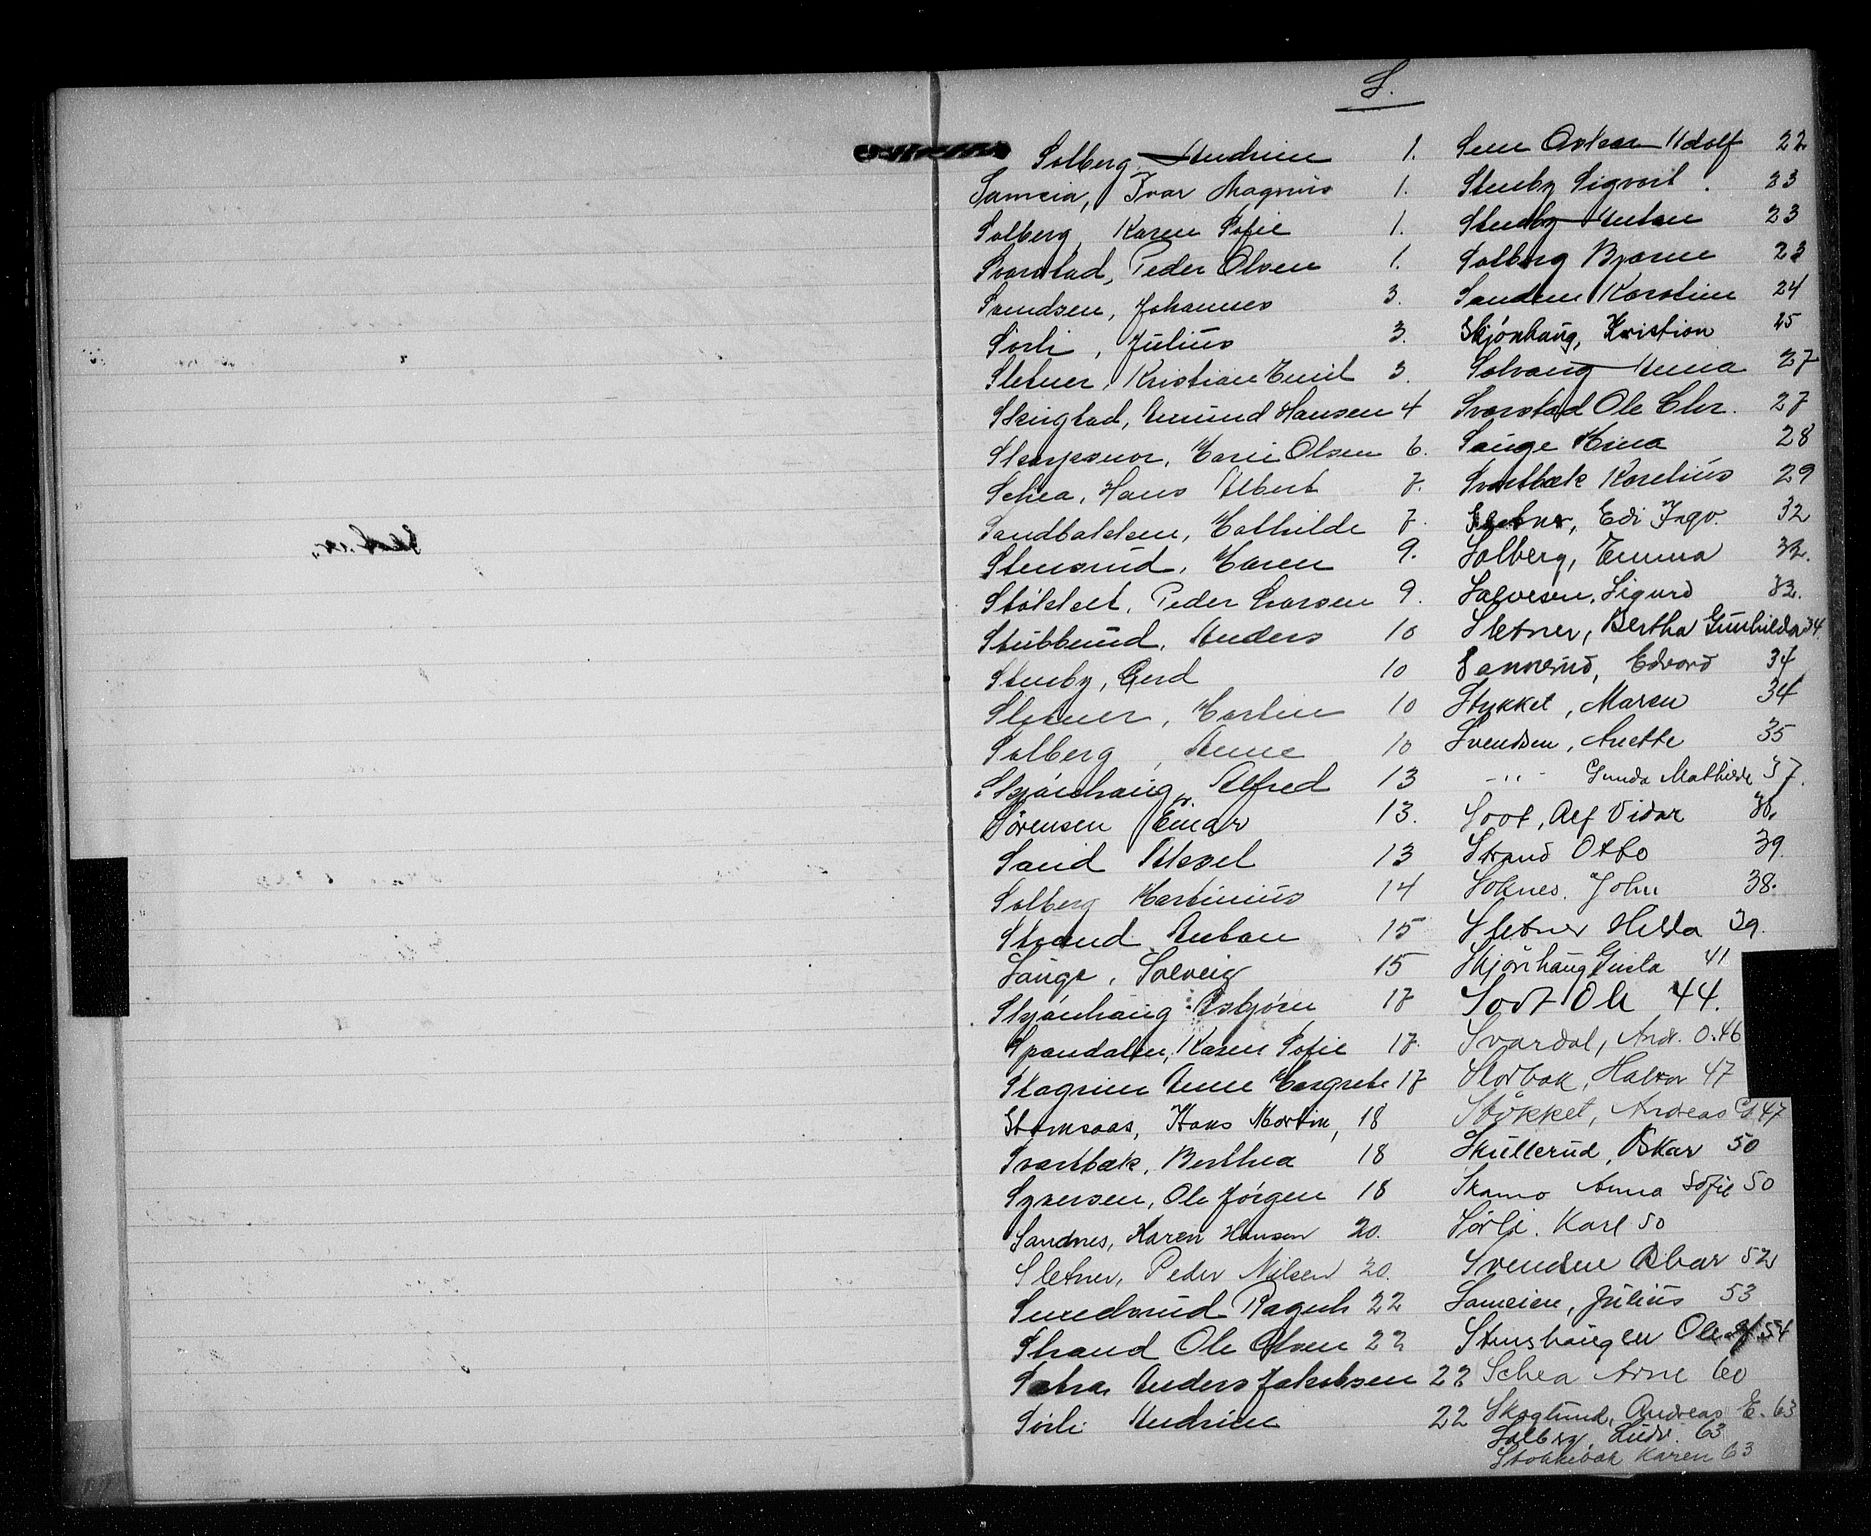 S.
Solberg, Andrine 1.
Sameia, Ivar Magnus 1.
Solberg, Karen Sofie 1.
Svarstad, Peder Olsen 1.
Svendsen, Johannes 3.
Sörli, Julius 3.
Sletner, Kristian Emil 3.
Skingstad, Amund Hansen 4
Skarpsnor, Marie Olsen 6.
Schea, Hans Albert 7.
Sandbakken, Mathilde 7.
Stensrud, Maren 9.
Stökket, Peder Larsen 9.
Stubberud, Anders 10
Stenby, Gerd 10
Sletner, Martin 10
Solberg, Anne 10
Skjönhaug, Alfred 13
Sörensen Einar 13.
Sand Aksel 13
Solberg Martinius 14
Strand Anton 15
Sauge, Solveig 15
Skjönhaug Asbjörn 17
Spondalen, Karen Sofie 17.
Skogrim Anne Margrete 17
Stomsaas, Hans Martin, 18
Svartbæk, Berthea 18
Syversen, Ole Jörgen 18
Sandnes, Karen Hansen 20.
Sletner, Peder Nilsen 20.
Smedsrud Ragnh 22
Strand Ole Olsen 22
Anders Jakobsen 22
Sörli Andrine 22
Sem Oskar Adolf 22
Stenby Sigvart . 23
Stenby Anton 23
Solberg Bjarne 23
Sanden Karstine 24
Skjönhaug, Kristian 25
Solvang Anna 27
Svarstad Ole Chr. 27
Sauge Anna 28
Svartbæk Karelius 29
Sletner, Edi Ingv. 32
Solberg, Emma 32.
Salvesen, Sigurd 32.
Sletner, Bertha Gunhilda 34
Sannerud, Edvard 34
Stykket, Maren 34
Svendsen, Anette 35
- " - Gunda Mathilde 37.
Soot, Alf Vidar 38.
Strand Otto 39.
Soknes. John 38.
Sletner Hilda 39.
Skjönhaug Gusta 41
Soot Ole 44.
Svardal, Andr. O. 46
Storbæk, Halvor 47
Stökket, Andreas G 47
Skullerud, Oskar 50
Skamo Anna Sofie 50
Sörli. Karl 50
Svendsen 52
Sameien, Julius 53
Stenshaugen Ole 54
Schea Arne 60
Skoglund, Andreas E. 63
Solberg, Ludv. 63
Stokkebæk Karen 63